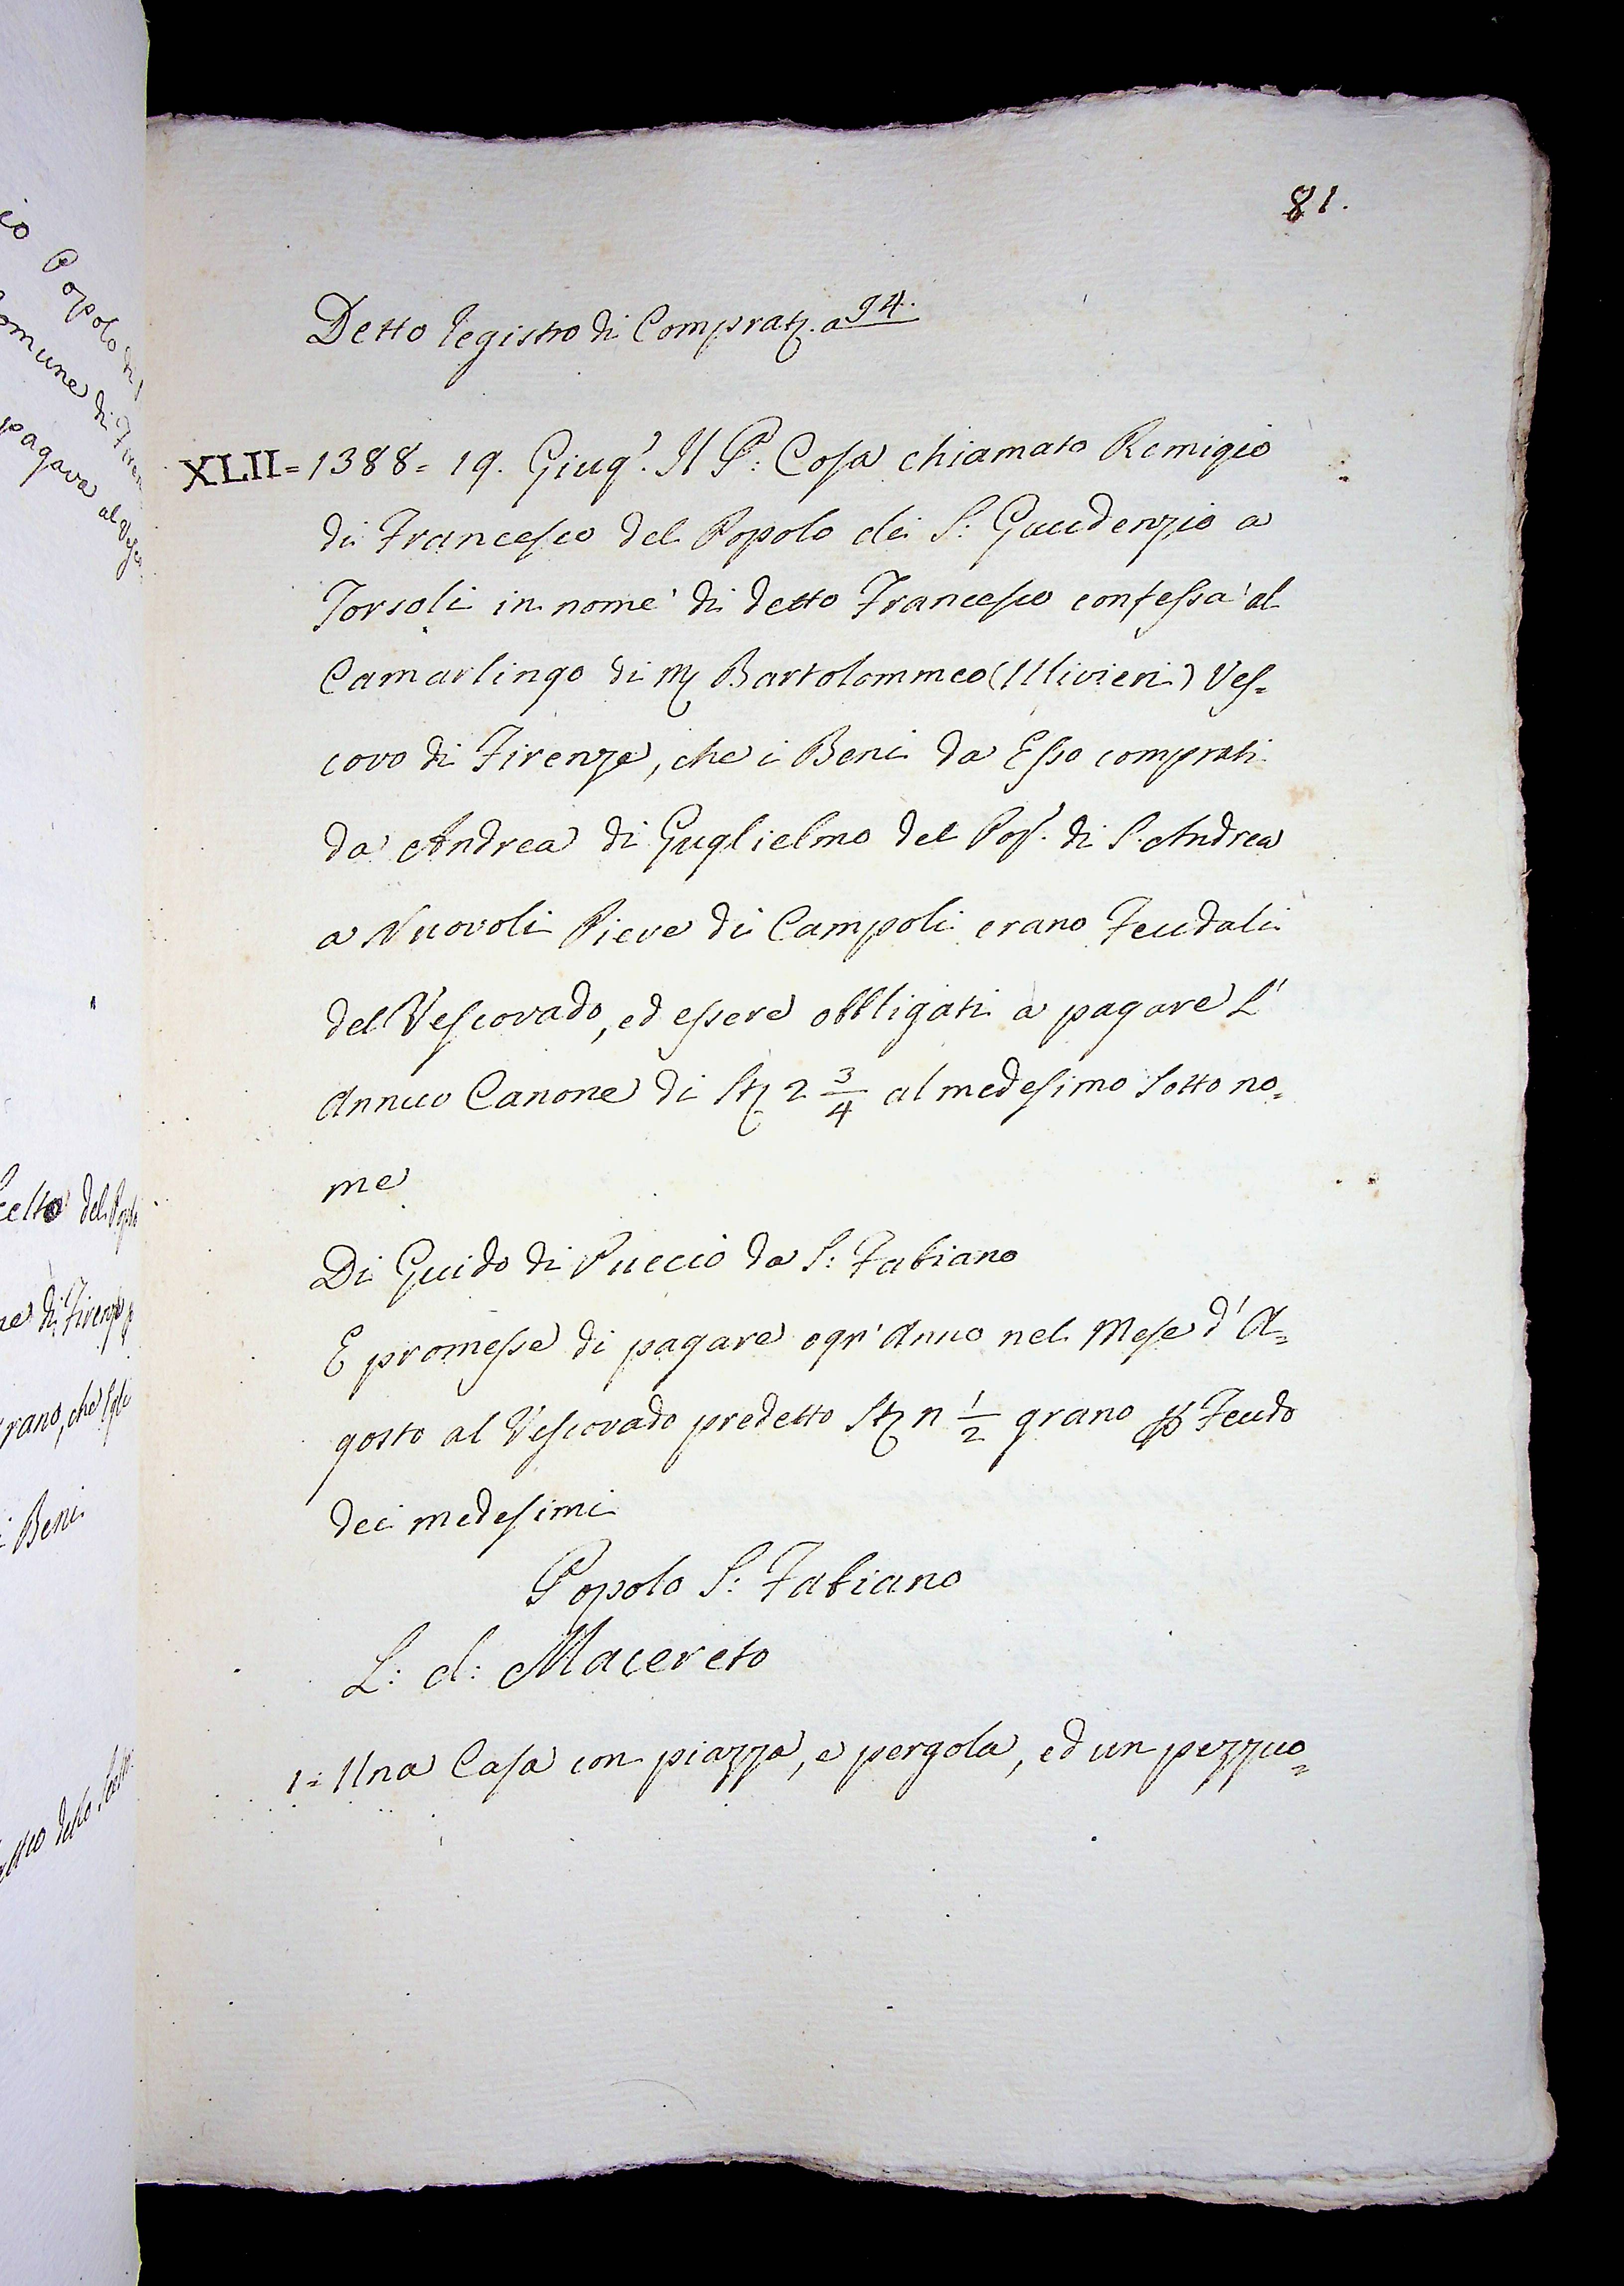 81.
Detto registro di Comprat. a 94.
XLII = 1388 = 19. Giug.º Il P: Cosa chiamato Remigio
di Francesco del Popolo di S: Gaudenzio a
Torsoli in nome di detto Francesco confessa al
Camarlingo di M Bartolommeo (Ulivieri) Ves=
covo di Firenze, che i Beni da Esso comprati
da Andrea di Guglielmo del Pop.º di S. Andrea
a Nuovoli Pieve di Campoli erano Feudali
del Vescovado, ed essere obbligati a pagare L'
Annuo Canone di St 2 3/4 al medesimo sotto no=
me
Di Guido di Puccio da S: Fabiano
E promesse di pagare ogn' Anno nel Mese d' A=
gosto al Vescovado predetto St n 1/2 grano Feudo
dei medesimi
Popolo S: Fabiano
L: d: Macereto
1= Una Casa con piazza, e pergola, ed un pezzuo=
Popolo di
omune di
pagava al
del Popolo
di Firenze
rano, che Egli
i Beni